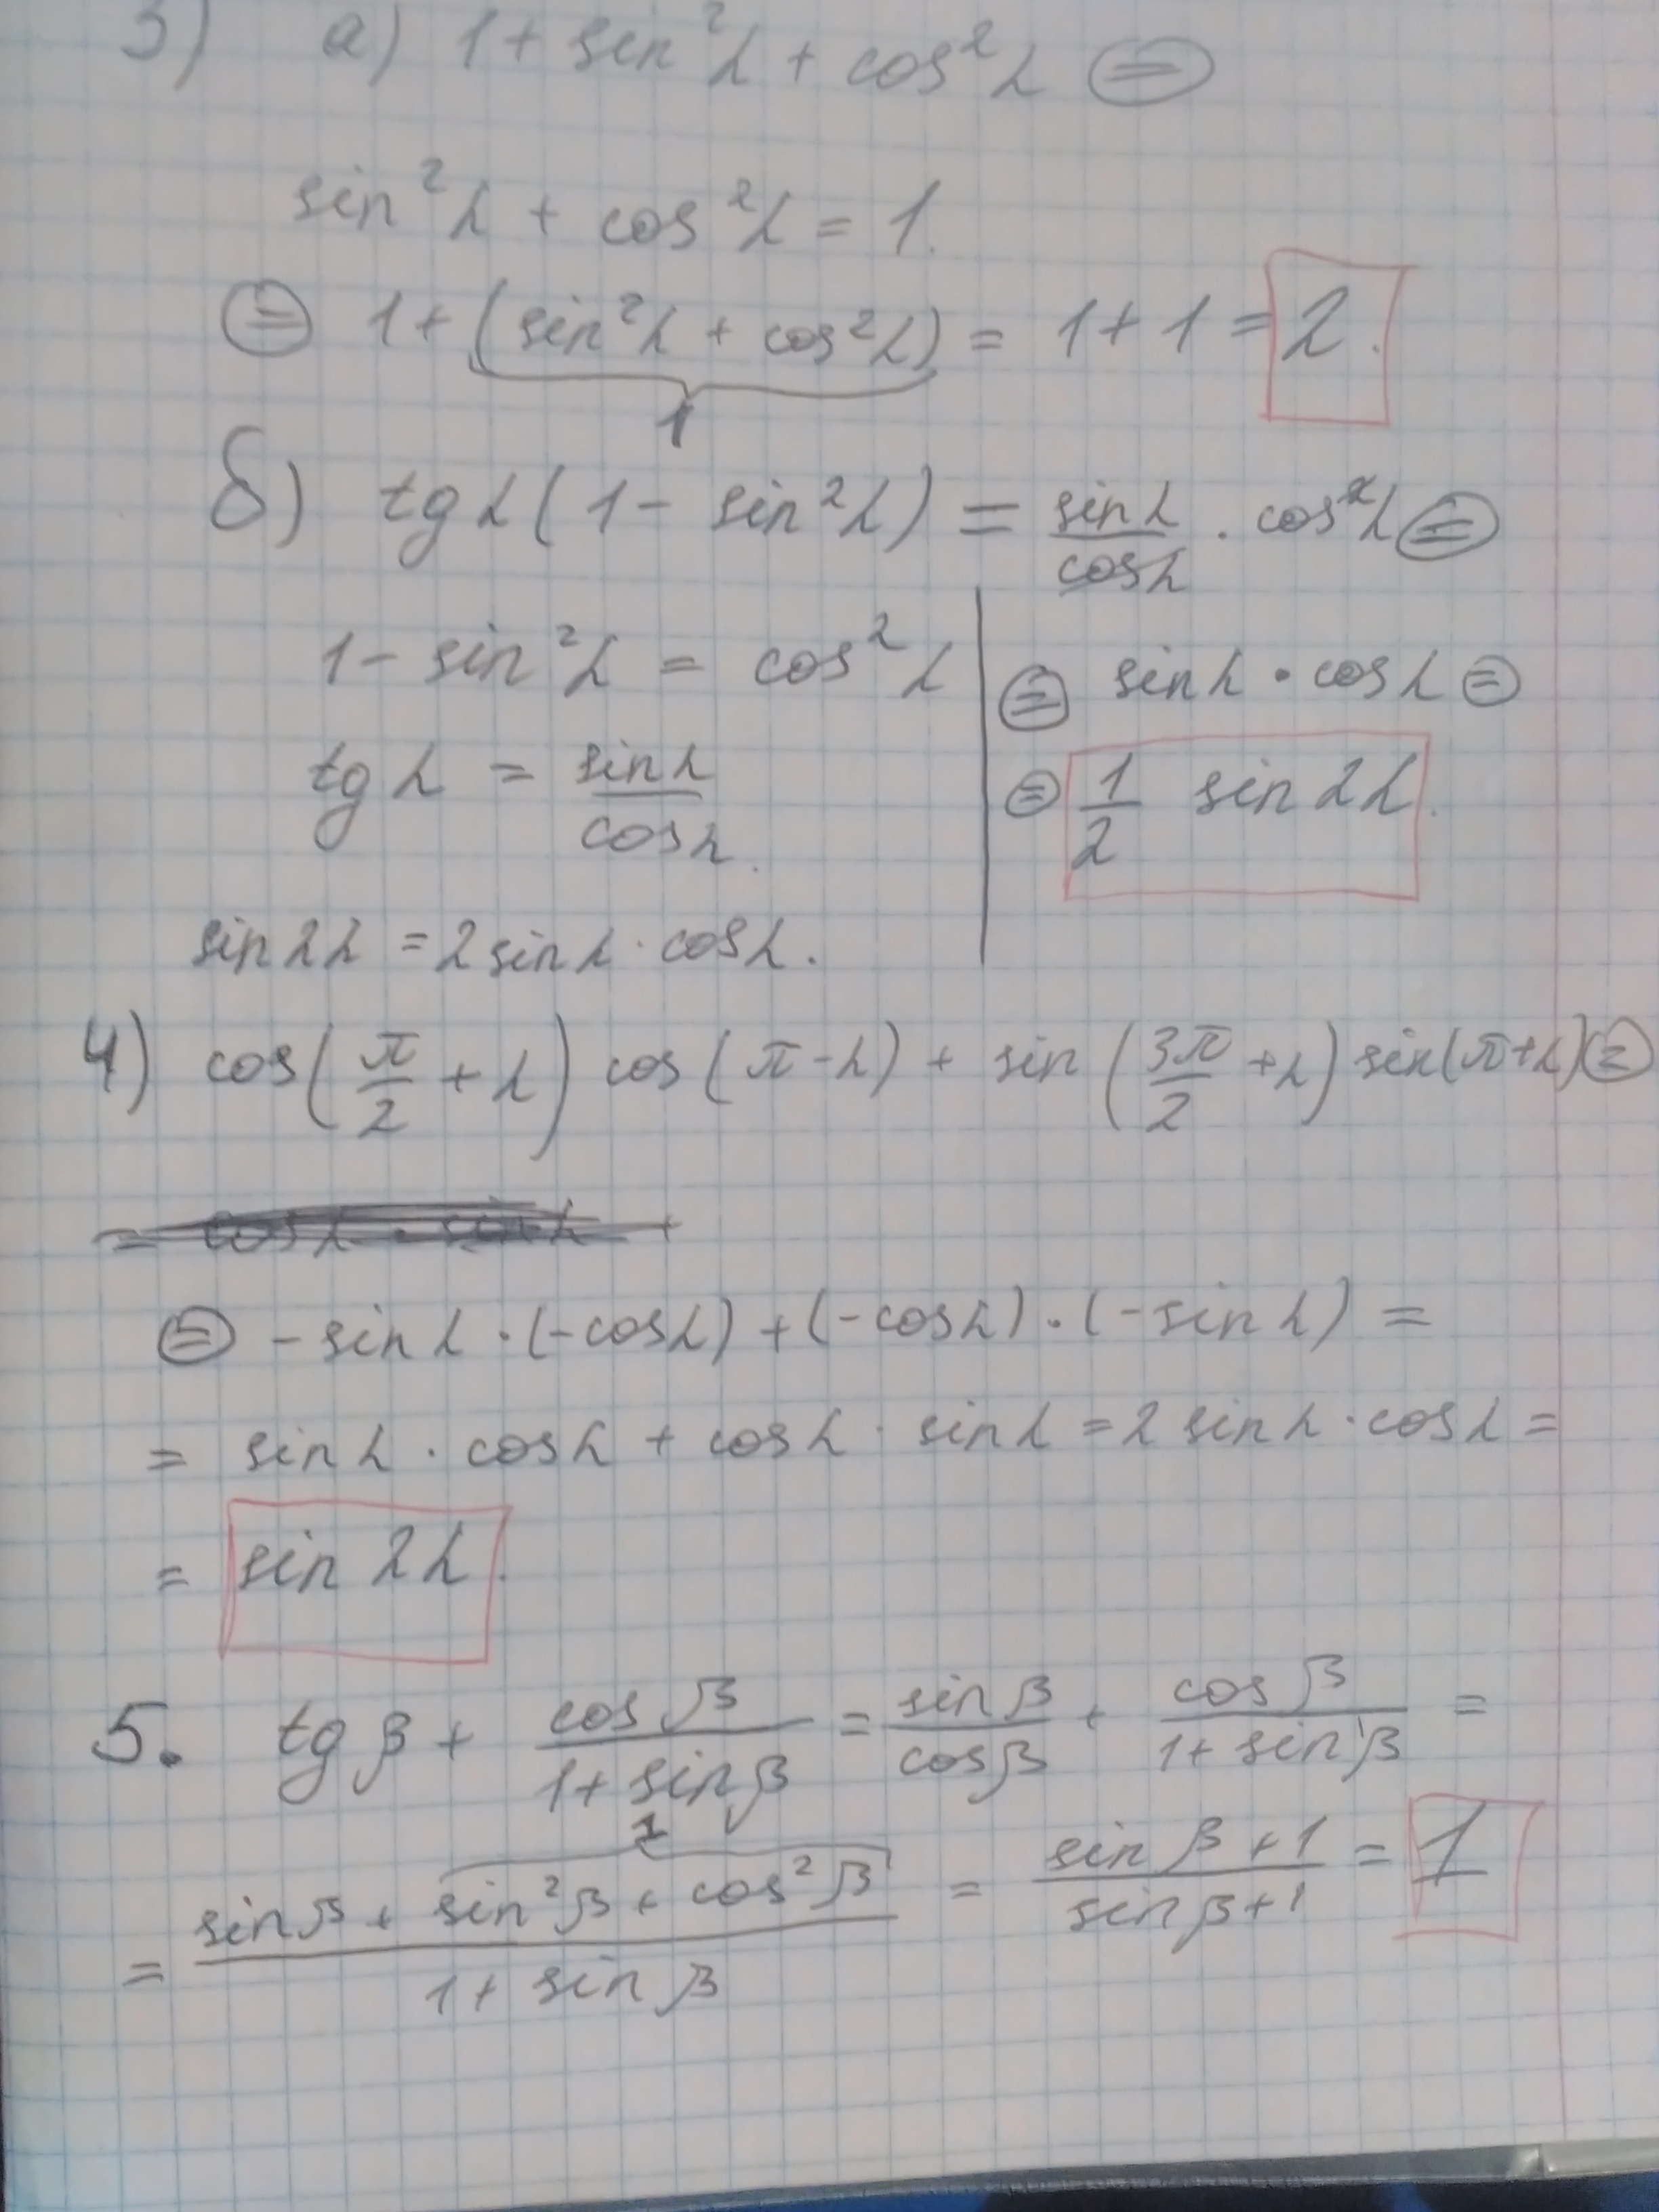 3) а) 1 + sin²α + cos²α =
sin²α + cos²α = 1.
= 1 + (sin²α + cos²α) = 1 + 1 = 2.
1
б) tg α (1 - sin²α) = sinα/cosα · cos²α =
1 - sin²α = cos²α
= sinα · cosα =
tg α = sinα/cosα.
= 1/2 sin 2α.
sin 2α = 2 sinα · cosα.
4) cos(π/2 + α) cos(π - α) + sin(3π/2 + α) sin(π + α) =
= - sinα · (-cosα) + (-cosα) · (-sinα) =
= sinα · cosα + cosα · sinα = 2 sinα · cosα =
= sin 2α.
5. tg β + cos β/(1 + sin β) = sin β/cos β + cos β/(1 + sin β) =
1
= (sin β + sin²β + cos²β)/(1 + sin β) = (sin β + 1)/(sin β + 1) = 1